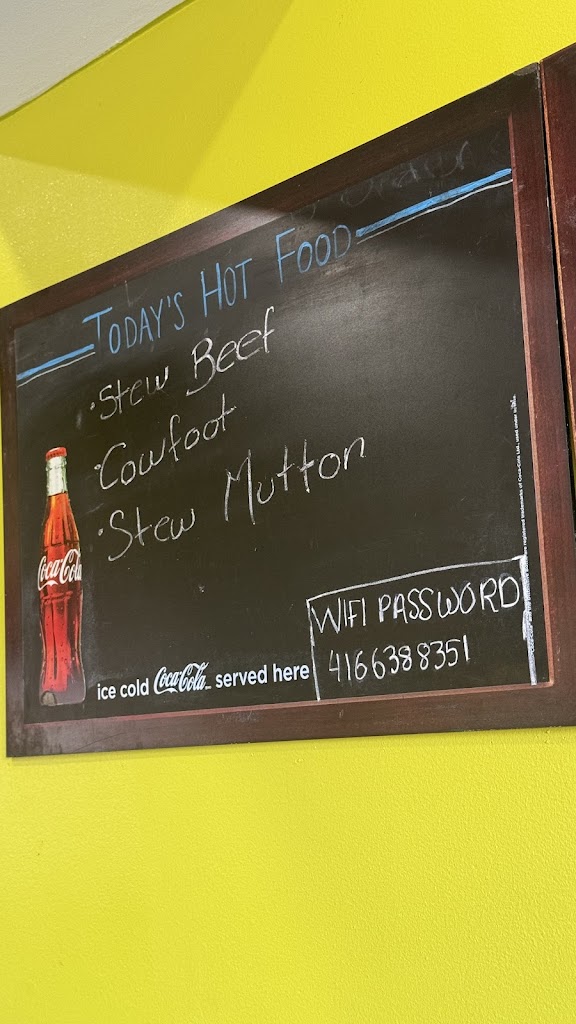 TODAY'S HOT FOOD
·Stew Beef
·Cowfoot
·Stew Mutton
Coca-Cola
WIFI PASSWORD
4166388351
ice cold Coca-Cola served here